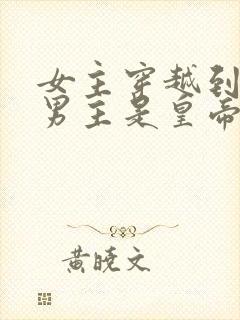 女主穿越到
男主是皇帝
黄晓文